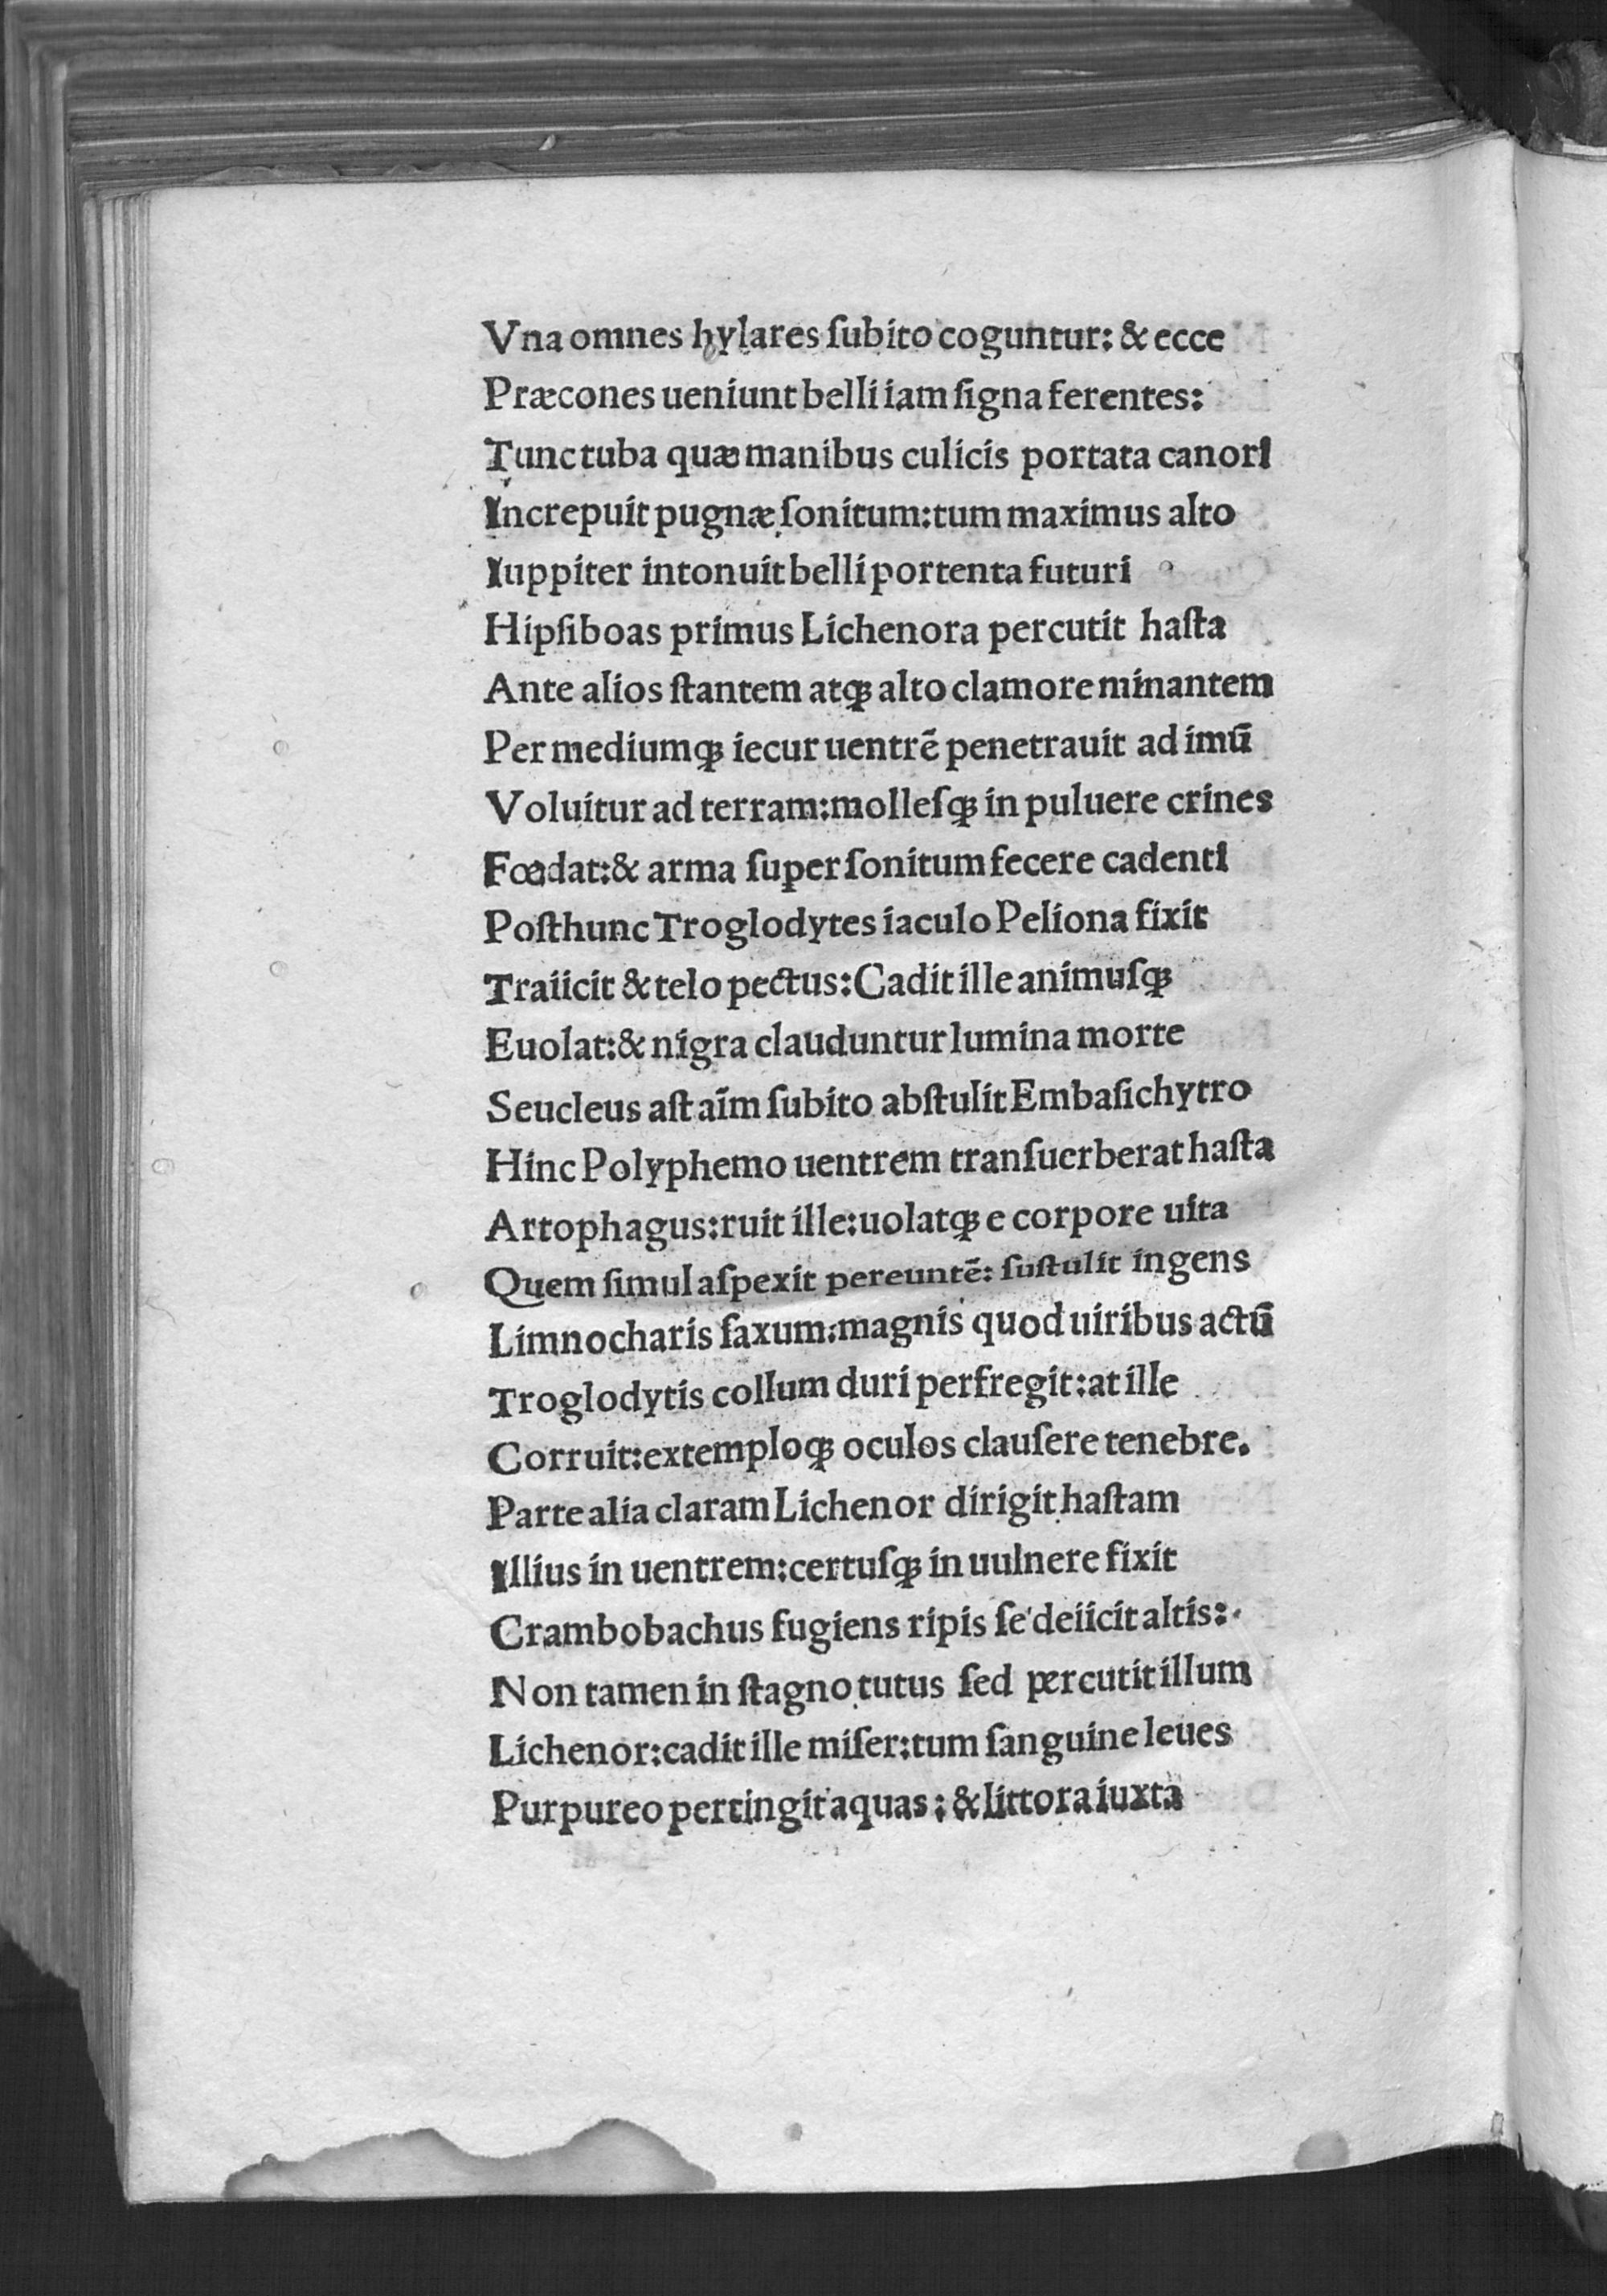 Vna omnes hylares ſubito coguntur: & ecce
Præcones ueniunt belli iam ſigna ferentes:
Tunc tuba quæ manibus culicis portata canori
Increpuit pugnæ ſonitum: tum maximus alto
Iuppiter intonuit belli portenta futuri
Hipſiboas primus Lichenora percutit haſta
Ante alios ſtantem atqꝫ alto clamore minantem
Per mediumqꝫ iecur uentrē penetrauit ad imū
Voluitur ad terram: molleſqꝫ in puluere crines
Fœdat: & arma ſuper ſonitum fecere cadenti
Poſt hunc Troglodytes iaculo Peliona fixit
Traiicit & telo pectus: Cadit ille animuſqꝫ
Euolat: & nigra clauduntur lumina morte
Seucleus aſt aīm ſubito abſtulit Embaſichytro
Hinc Polyphemo uentrem tranſuerberat haſta
Artophagus: ruit ille: uolatqꝫ e corpore uita
Quem ſimul aſpexit pereuntē: ſuſtulit ingens
Limnocharis ſaxum: magnis quod uiribus actū
Troglodytis collum duri perfregit: at ille
Corruit: extemploqꝫ oculos clauſere tenebre.
Parte alia claram Lichenor dirigit haſtam
Illius in uentrem: certuſqꝫ in uulnere fixit
Crambobachus fugiens ripis ſe deiicit altis:
Non tamen in ſtagno tutus ſed percutit illum
Lichenor: cadit ille miſer: tum ſanguine leues
Purpureo pertingit aquas: & littora iuxta